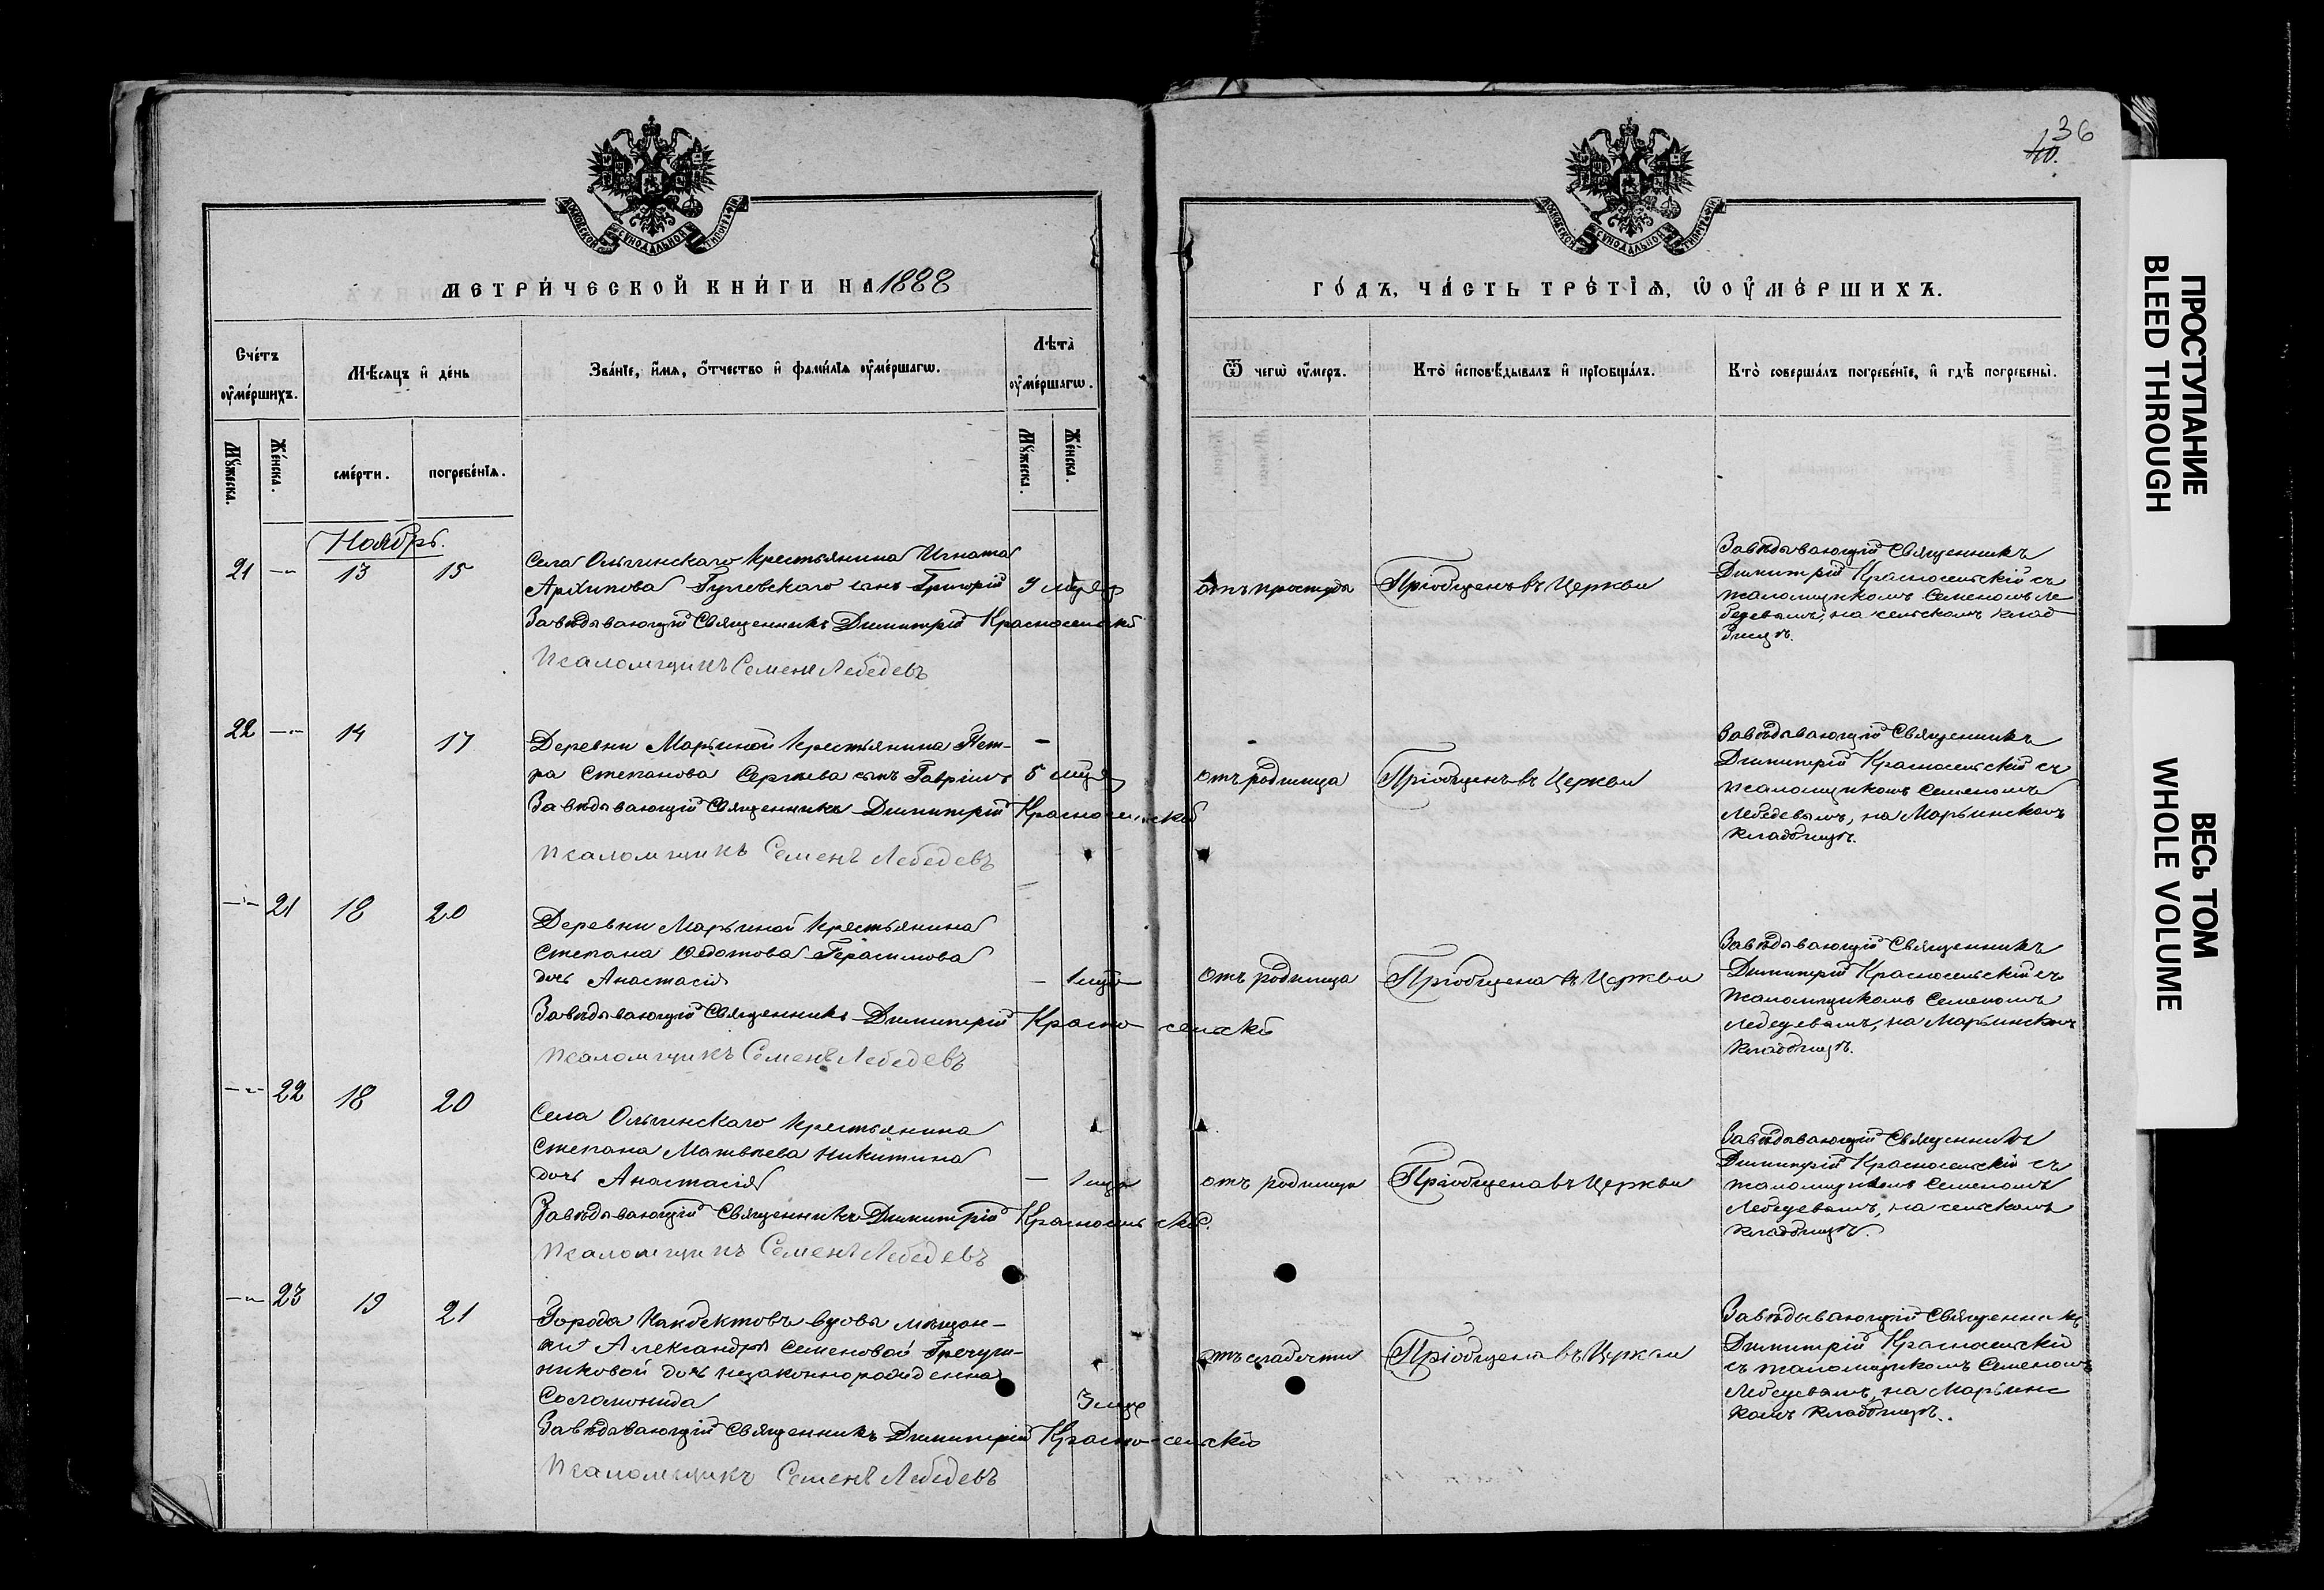 36
10.
МОСКОВСКОЙ СѴНОДАЛЬНОЙ ТИПОГРАФІИ
МОСКОВСКОЙ СѴНОДАЛЬНОЙ ТИПОГРАФІИ
МЕТРИ́ЧЕСКОЙ КНИ́ГИ НА 1888
ГО́ДЪ, ЧА́СТЬ ТРЕ́ТІѦ, Ѡ ОУ҆МЕ́РШИХЪ.
Сче́тъ оу҆ме́ршихъ.
Мѣ́сяцъ и҆ де́нь
Зва́нїе, и҆́мя, о҆́тчество и҆ фами́лїя оу҆ме́ршагѡ.
Лѣта̀ оу҆ме́ршагѡ.
Ѿ чегѡ̀ оу҆́меръ.
Кто̀ и҆сповѣ́дывалъ и҆ прїѡбща́лъ.
Кто̀ соверша́лъ погребе́нїе, и҆ гдѣ̀ погребены̀.
Мꙋ́жеска.
Же́нска.
сме́рти.
погребе́нїѧ.
Мꙋ́жеска.
Же́нска.
Ноябрь.
21 — 13 15
Села Ольгинскаго Крестьянина Игната
Архипова Гулевскаго сынъ Григорій 9 мцев
Завѣдывающій Священникъ Димитрій Красносельскій
Псаломщикъ Семенъ Лебедевъ
отъ простуды
Пріобщенъ въ Церкви
Завѣдывающій Священникъ
Димитрій Красносельскій съ
псаломщикомъ Семеномъ Ле
бедевымъ, на сельскомъ клад
бищѣ.
22 — 14 17
Деревни Марьиной Крестьянина Пет- —
ра Степанова Сергѣева сынъ Гавріилъ 5 мцев
Завѣдывающій Священникъ Димитрій Красносельскій
Псаломщикъ Семенъ Лебедевъ
отъ родимца
Пріобщенъ въ Церкви
Завѣдывающій Священникъ
Димитрій Красносельскій съ
псаломщикомъ Семеномъ
Лебедевымъ, на Марьинскомъ
кладбищѣ.
— 21 18 20
Деревни Марьиной Крестьянина
Степана Ѳедотова Герасимова
дочь Анастасія — 1 мца
Завѣдывающій Священникъ Димитрій Красносельскій
Псаломщикъ Семенъ Лебедевъ
отъ родимца
Пріобщена въ Церкви
Завѣдывающій Священникъ
Димитрій Красносельскій съ
псаломщикомъ Семеномъ
Лебедевымъ, на Марьинскомъ
кладбищѣ.
— 22 18 20
Села Ольгинскаго Крестьянина
Степана Матвѣева Никитина
дочь Анастасія — 1 мца
Завѣдывающій Священникъ Димитрій Красносельскій.
Псаломщикъ Семенъ Лебедевъ
отъ родимца
Пріобщена въ Церкви
Завѣдывающій Священникъ
Димитрій Красносельскій съ
псаломщикомъ Семеномъ
Лебедевымъ, на сельскомъ
кладбищѣ.
— 23 19 21
Города вдовы мѣщан-
ки Александры Семеновой Гречуш-
никовой дочь незаконнорожденна
Соломонида 3 мце
Завѣдывающій Священникъ Димитрій Красно-сельскій
Псаломщикъ Семенъ Лебедевъ
отъ слабости
Пріобщена въ Церкви
Завѣдывающій Священникъ
Димитрій Красносельскій
съ псаломщикомъ Семеномъ
Лебедевымъ, на Марьинс
комъ кладбищѣ.
ПРОСТУПАНИЕ
BLEED THROUGH
ВЕСЬ ТОМ
WHOLE VOLUME